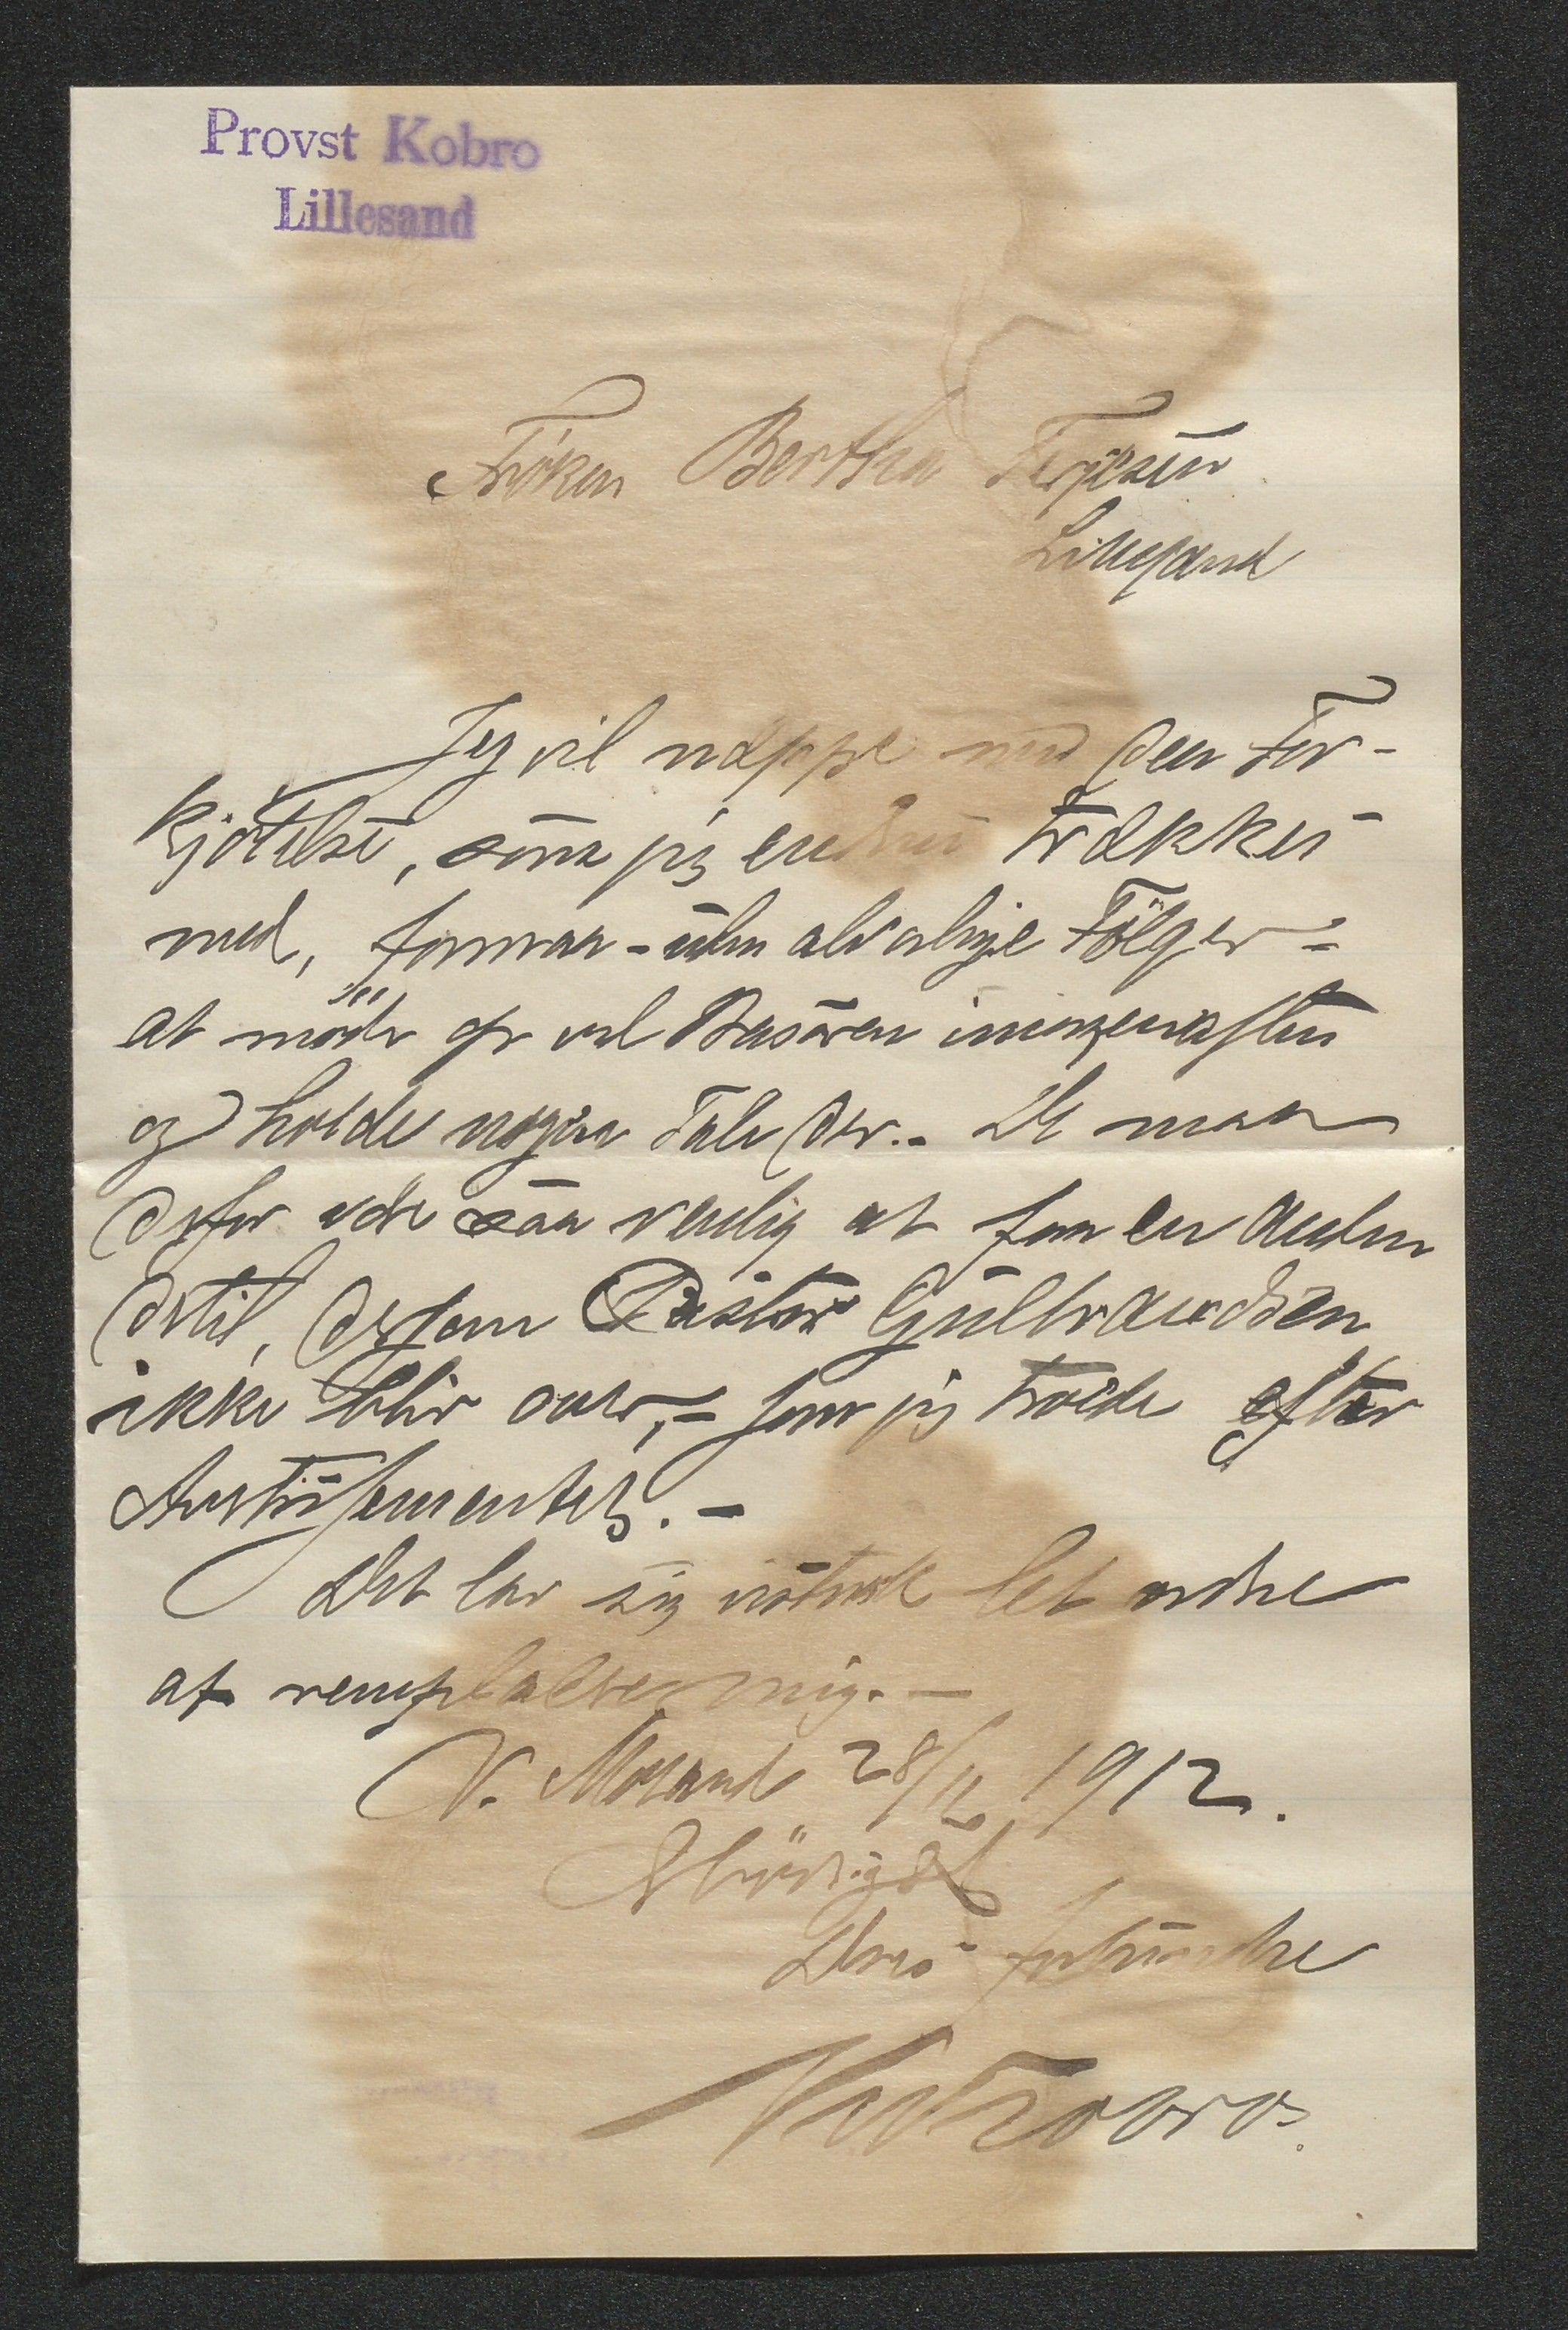 Provst Kobro
Lillesand
Frøken Bertha Terjesen
Lillesand
Jeg vil næppe med den For-
kjølelse, som jeg endnu trækkes
med, formaa - uden alvorlige Følger -
at møde op ved Basaren imorgenaften
og holde nogen Tale der. - De maa
derfor være saa venlig at faa en anden
dertil, dersom Pastor Gulbrandsen
ikke blir over, - som jeg troede efter
Avertissementet. -
Det lar sig let ordne
at remplacere mig. -
V. Moland 28/11 1912.
Ærbødigst
Deres forbundne
Kobro.